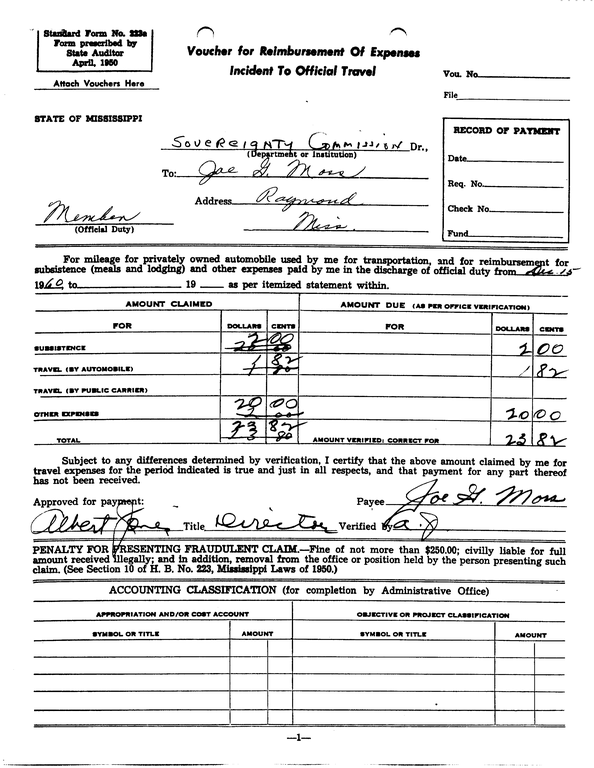 Standard Form No. 223a
Form prescribed by
State Auditor
April, 1950
Attach Vouchers Here
Voucher for Reimbursement Of Expenses
Incident To Official Travel
Vou. No.
File
STATE OF MISSISSIPPI
RECORD OF PAYMENT
Date
Req. No.
Check No.
Fund
SOVEREIGNTY COMMISSION Dr.,
(Department or Institution)
To: Joe G. Moss
Address Raymond
Miss.
Member
(Official Duty)
For mileage for privately owned automobile used by me for transportation, and for reimbursement for
subsistence (meals and lodging) and other expenses paid by me in the discharge of official duty from Dec. 15
1960, to 19 as per itemized statement within.
AMOUNT CLAIMED AMOUNT DUE (AS PER OFFICE VERIFICATION)
FOR DOLLARS CENTS FOR DOLLARS CENTS
SUBSISTENCE 2 00 2 00
TRAVEL (BY AUTOMOBILE) 1 82 1 82
TRAVEL (BY PUBLIC CARRIER)
OTHER EXPENSES 20 00 20 00
TOTAL 23 82 AMOUNT VERIFIED: CORRECT FOR 23 82
Subject to any differences determined by verification, I certify that the above amount claimed by me for
travel expenses for the period indicated is true and just in all respects, and that payment for any part thereof
has not been received.
Approved for payment: Payee Joe G. Moss
Albert Jones Title Director Verified by a. J
PENALTY FOR PRESENTING FRAUDULENT CLAIM.—Fine of not more than $250.00; civilly liable for full
amount received illegally; and in addition, removal from the office or position held by the person presenting such
claim. (See Section 10 of H. B. No. 223, Mississippi Laws of 1950.)
ACCOUNTING CLASSIFICATION (for completion by Administrative Office)
APPROPRIATION AND/OR COST ACCOUNT OBJECTIVE OR PROJECT CLASSIFICATION
SYMBOL OR TITLE AMOUNT SYMBOL OR TITLE AMOUNT
—1—